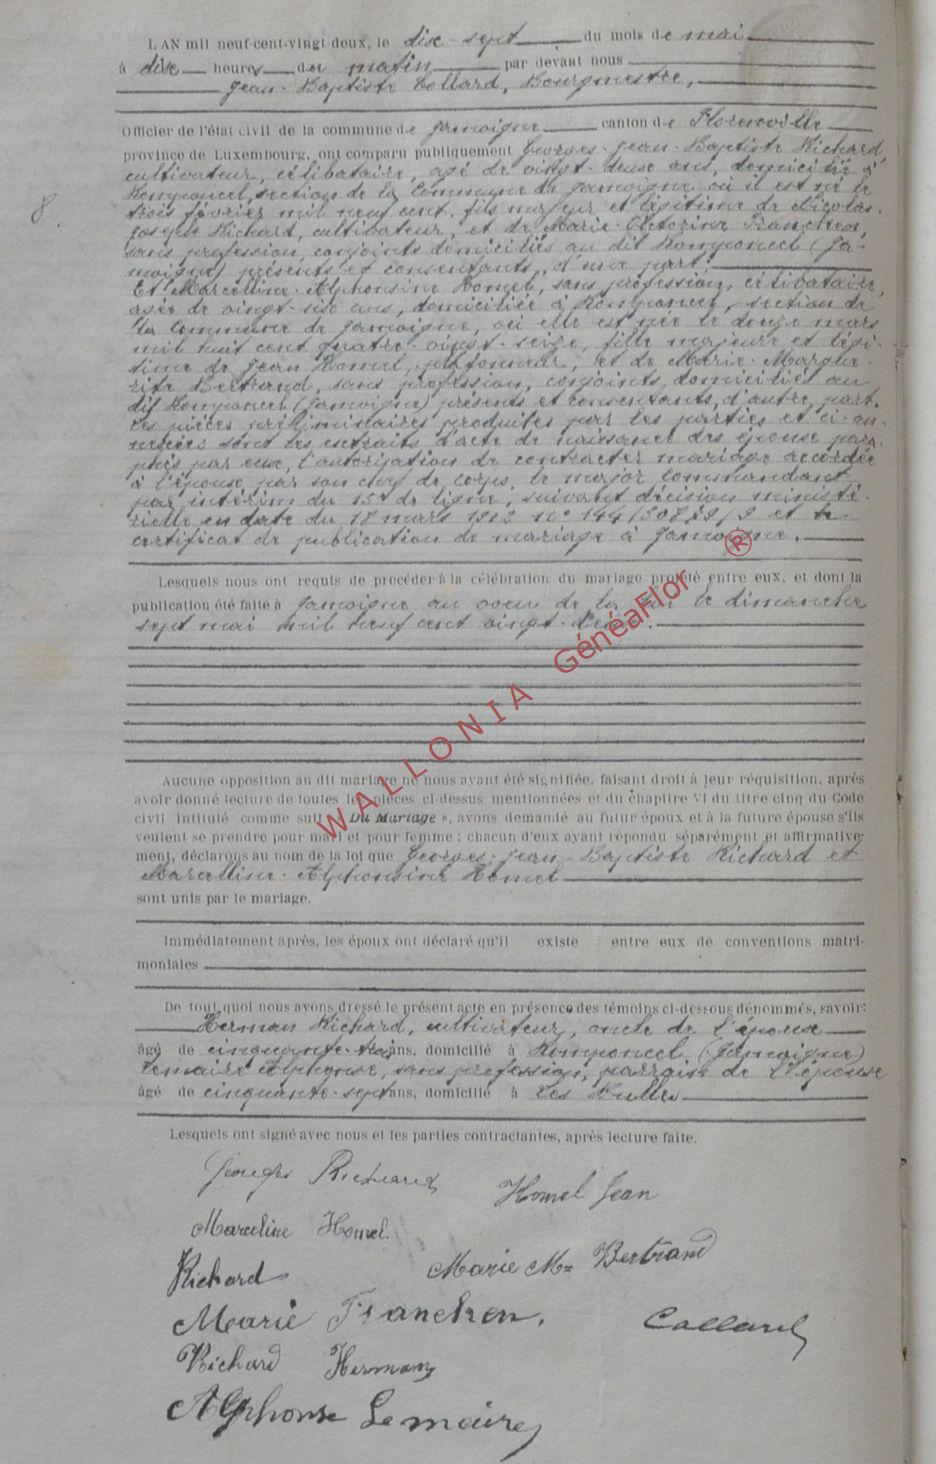 L'AN mil neuf-cent-vingt deux, le dix-sept du mois de mai
à dix heures du matin par devant nous
Jean-Baptiste Collard, Bourgmestre,
Officier de l'état civil de la commune de Jamoigne canton de Florenville
province de Luxembourg, ont comparu publiquement Georges-Jean-Baptiste Richard,
cultivateur, célibataire, âgé de vingt-deux ans, domicilié à
Romponcel, section de la Commune de Jamoigne où il est né le
8
trois février mil neuf cent, fils majeur et légitime de Nicolas-
Joseph Richard, cultivateur, et de Marie-Victorine Francken,
sans profession, conjoints domiciliés au dit Romponcel (Ja-
moigne) présents et consentants, d'une part;
Et Marcelline-Alphonsine Homel, sans profession, célibataire,
âgée de vingt-six ans, domiciliée à Romponcel, section de
la Commune de Jamoigne, où elle est née le douze mars
mil huit cent quatre-vingt-seize, fille majeure et légi-
time de Jean Homel, plafonneur, et de Marie-Margue-
rite Bertrand, sans profession, conjoints, domiciliés au
dit Romponcel (Jamoigne) présents et consentants, d'autre part.
Les pièces préliminaires produites par les parties et ci-an-
nexées sont les extraits d'acte de naissance des époux para-
phés par eux, l'autorisation de contracter mariage accordée
à l'époux par son chef de corps, le major commandant
par intérim du 15e de ligne, suivant décision ministé-
rielle en date du 18 mars 1913 n° 144/50829/9 et le
certificat de publication de mariage à Jamoigne.
Lesquels nous ont requis de procéder à la célébration du mariage projeté entre eux, et dont la
publication été faite à Jamoigne au voeu de la loi le dimanche
sept mai mil neuf cent vingt-deux.
WALLONIA GénéaFlor ®
Aucune opposition au dit mariage ne nous ayant été signifiée, faisant droit à leur réquisition, après
avoir donné lecture de toutes les pièces ci-dessus mentionnées et du chapitre VI du titre cinq du Code
civil intitulé comme suit « Du Mariage », avons demandé au futur époux et à la future épouse s'ils
veulent se prendre pour mari et pour femme ; chacun d'eux ayant répondu séparément et affirmative-
ment, déclarons au nom de la loi que Georges-Jean-Baptiste Richard et
Marcelline-Alphonsine Homel
sont unis par le mariage.
Immédiatement après, les époux ont déclaré qu'il existe entre eux de conventions matri-
moniales
De tout quoi nous avons dressé le présent acte en présence des témoins ci-dessous dénommés, savoir:
Herman Richard, cultivateur, oncle de l'époux
âgé de cinquante-trois ans, domicilié à Romponcel (Jamoigne)
Lemaire Alphonse, sans profession, parrain de l'épouse
âgé de cinquante-sept ans, domicilié à Les Bulles
Lesquels ont signé avec nous et les parties contractantes, après lecture faite.
Georges Richard
Homel Jean
Marceline Homel.
Richard
Marie Mte Bertrand
Marie Francken.
Collard
Richard Herman
Alphonse Lemaire